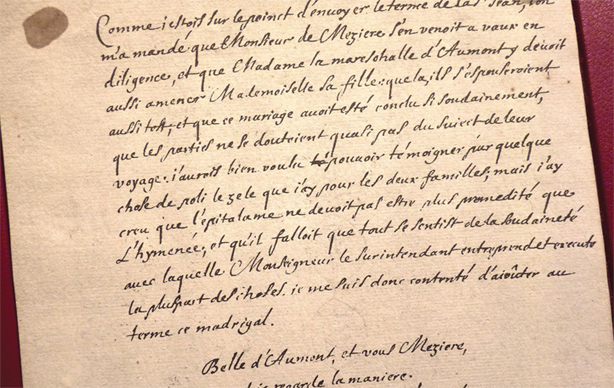 Comme j'estois sur le poinct d'envoyer le terme de la St Jean, l'on
m'a mandé que Monsieur de Meziere s'en venoit a vaux en
diligence, et que Madame la mareschalle d'Aumont y devoit
aussi amener Mademoiselle sa fille: que là, ils s'espouseroient
aussi tost, et que ce mariage avoit esté conclu si soudainement,
que les parties ne se doutoient quasi pas du suiect de leur
voyage: i'aurois bien voulu pouvoir témoigner par quelque
chose de poli le zele que i'ay pour les deux familles; mais i'ay
creu que l'épitalame ne devoit pas estre plus premedité que
L'hymenée, et qu'il falloit que tout se sentist de la soudaineté
avec laquelle Monseigneur le Surintendant entreprend et execute
la pluspart des choses. ie me suis donc contenté d'aiouter au
terme ce madrigal.
Belle d'Aumont, et vous Meziere,
regarde la maniere.